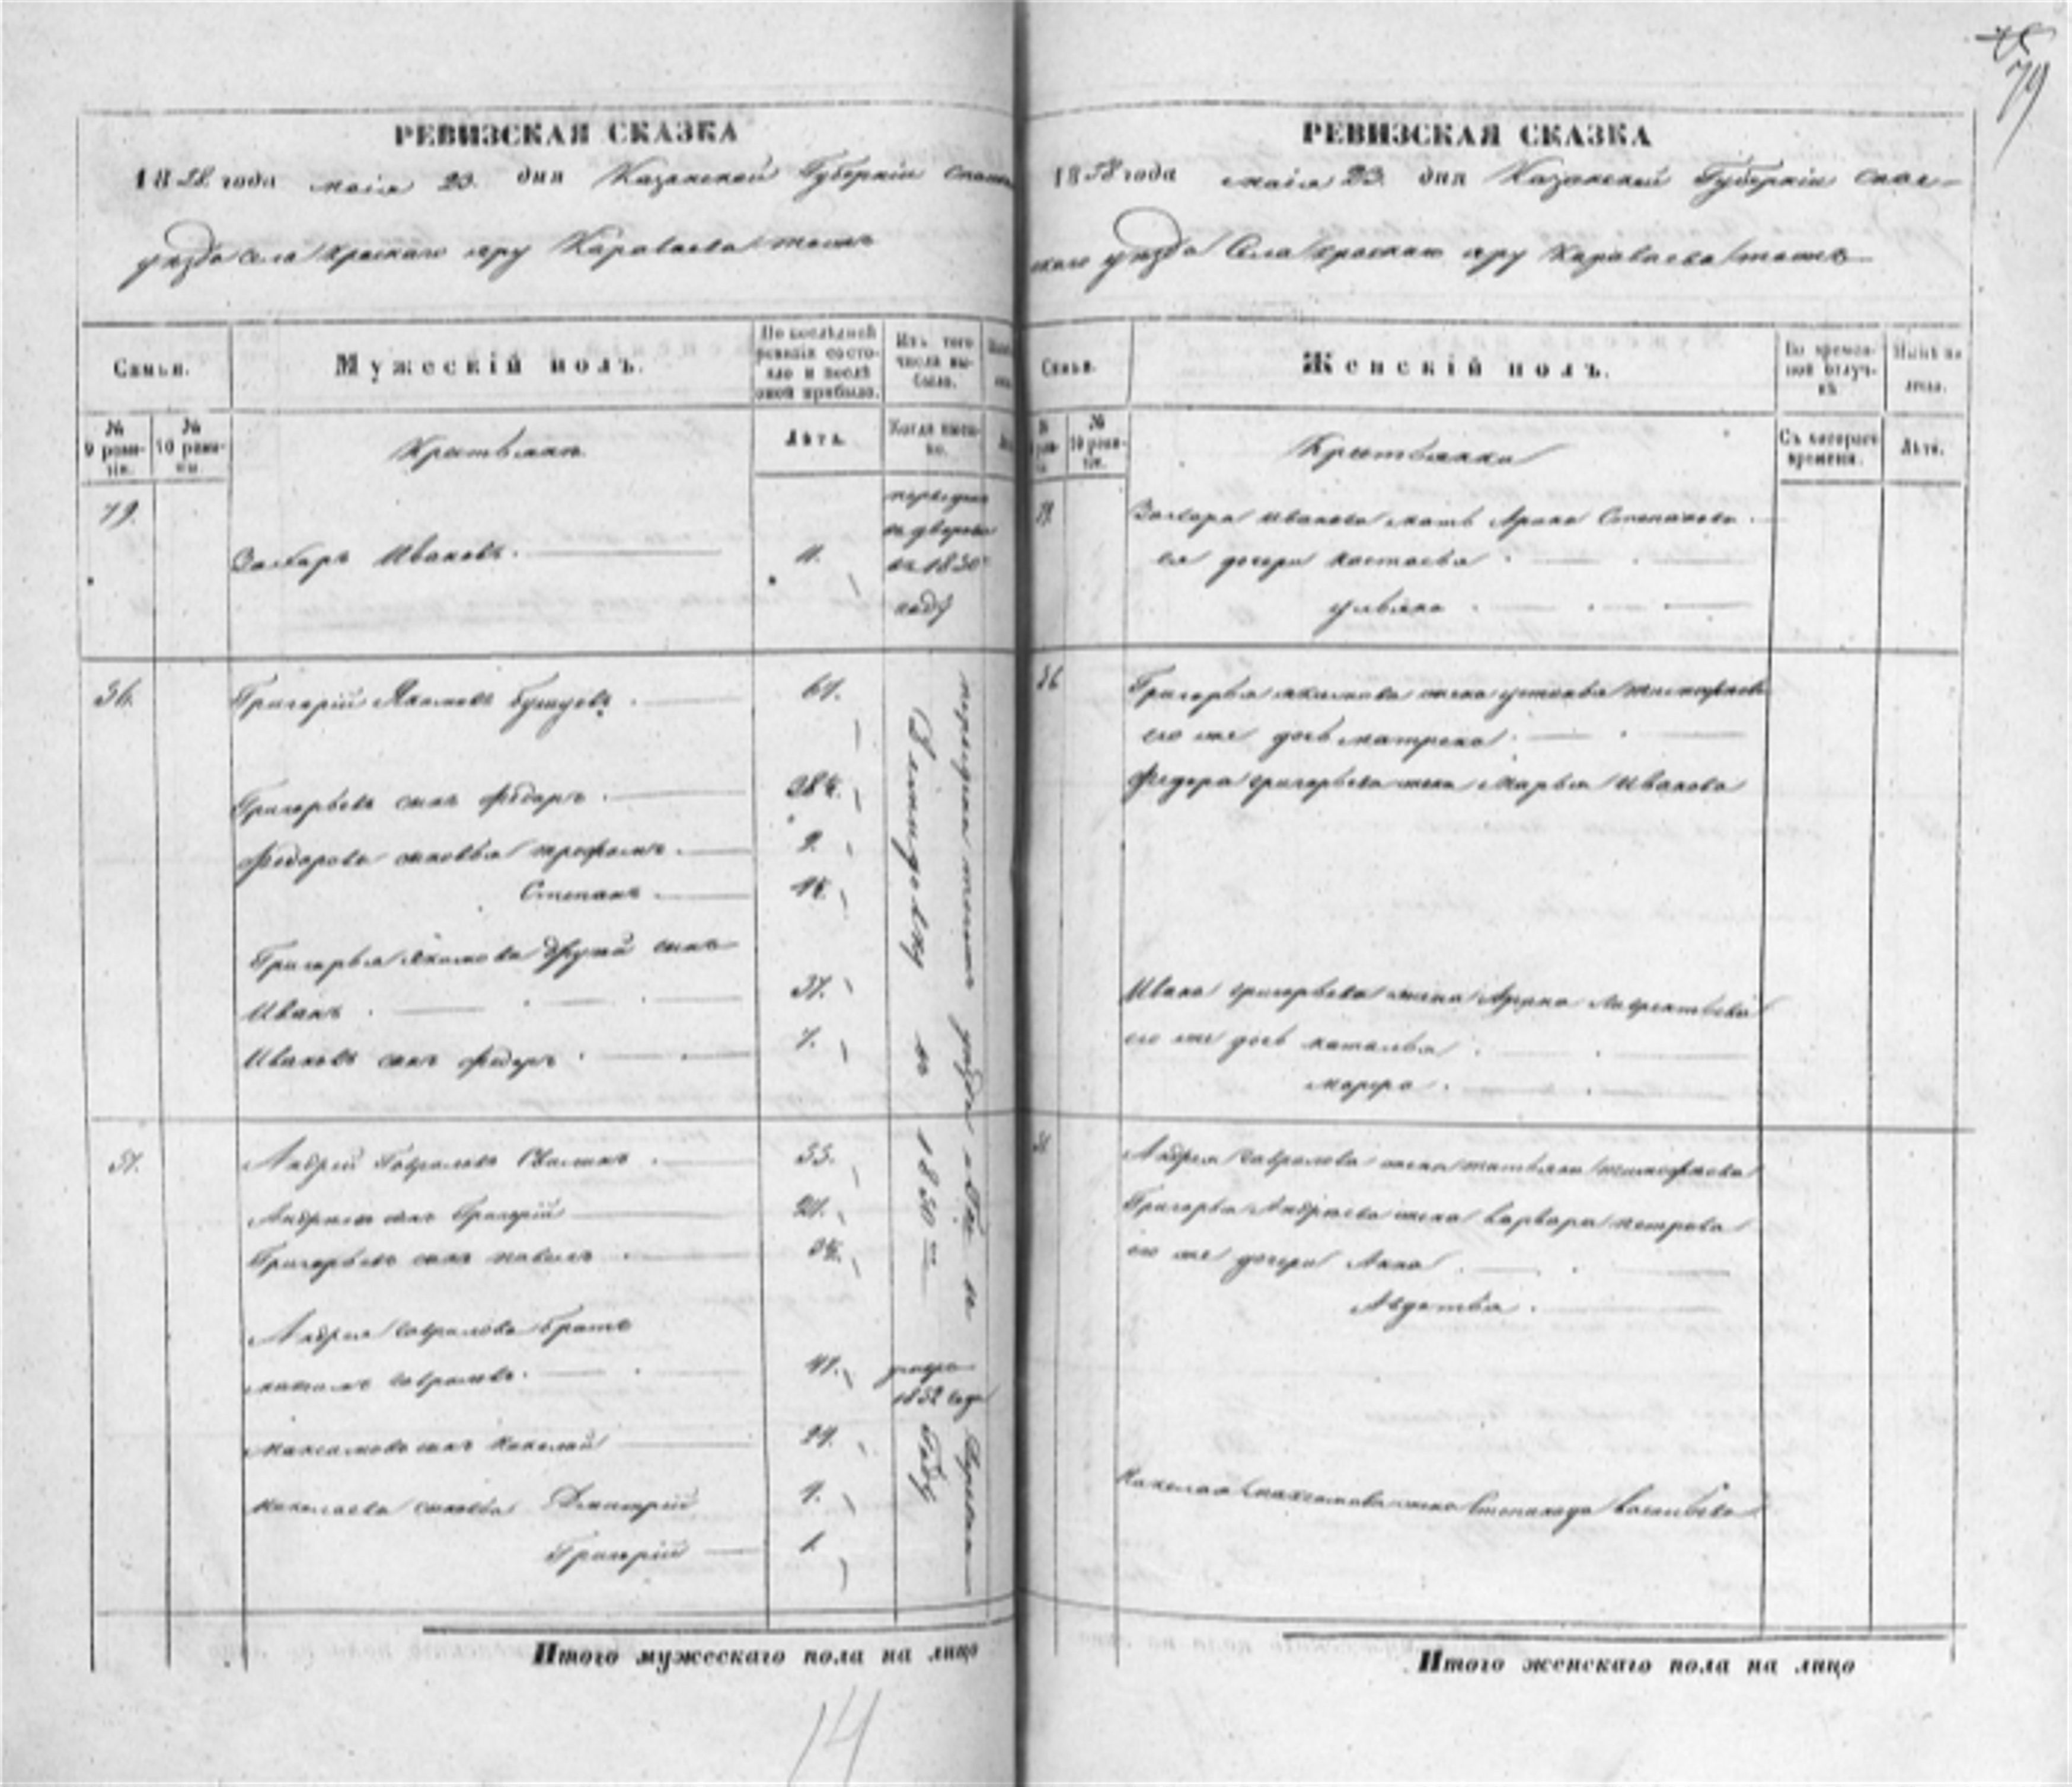 79
РЕВИЗСКАЯ СКАЗКА
1858 года маія 23. дня Казанской Губерніи
уезда села Красного яру Караваево тожъ
Семьи.
Мужескій полъ.
По послѣдней ревизіи состояло и послѣ оной прибыло.
Изъ того числа выбыло.
№ 9 ревизіи.
№ 10 ревизіи.
Крестьяне
Лѣта.
Когда именно.
79.
Захаръ Ивановъ.
11.
въ 1850
году
36.
Григорій Якимовъ
61.
Григорьевъ сынъ Федоръ.
Федорова сыновья Трофимъ.
9.
Степанъ.
Григорья Якимова другой сынъ
Иванъ.
37.
Ивановъ сынъ Федоръ.
7.
37.
Андрей Гавриловъ
55.
Андреевъ сынъ Григорій
21.
Григорьевъ сынъ Павелъ.
Андрея Гаврилова братъ
Гавриловъ.
41.
1852 года
Максимовъ сынъ Николай
Николаева сыновья Дмитрій
Григорій
1.
въ 1850 м
году
Итого мужескаго пола на лицо
14
РЕВИЗСКАЯ СКАЗКА
1858 года маія 23. дня Казанской Губерніи Спас-
скаго уезда Села Красного яру Караваево тожъ
Семьи.
Женскій полъ.
Во временной отлучкѣ.
Нынѣ на лицо.
№ 9 ревизіи.
№ 10 ревизіи.
Крестьянки
Съ котораго времени.
Лѣта.
79.
Захара Иванова мать Арина Степанова.
ея дочери Настасья
Ульяна
36
Григорья Якимова жена Устинья Тимофеева
его же дочь Матрена
Федора Григорьева жена Марья Иванова
Ивана Григорьева жена Арина Лаврентьева
его же дочь Наталья
Марфа.
Андрея Гаврилова жена Татьяна Тимофеева
Григорья Андреева жена Варвара Петрова
его же дочери Анна
Авдотья.
Николая Максимова жена Степанида Васильева
Итого женскаго пола на лицо